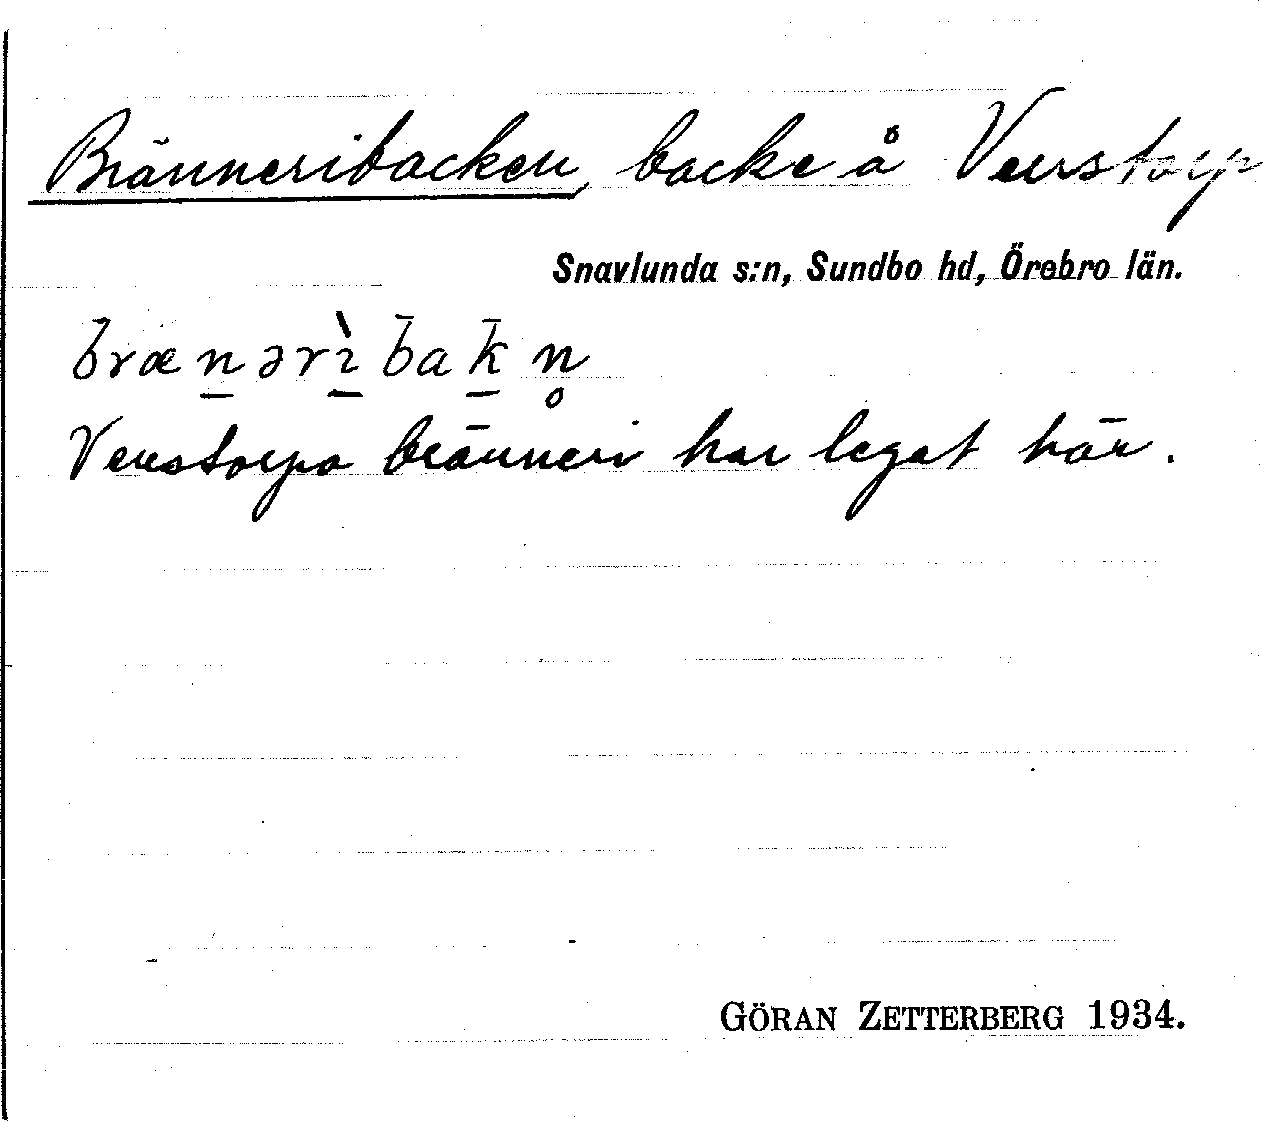 Bränneribacken, backe å Venstorp
Snavlunda s:n, Sundbo hd, Örebro län.
brænərìbakn̥
Venstorpa bränneri har legat här.
GÖRAN ZETTERBERG 1934.